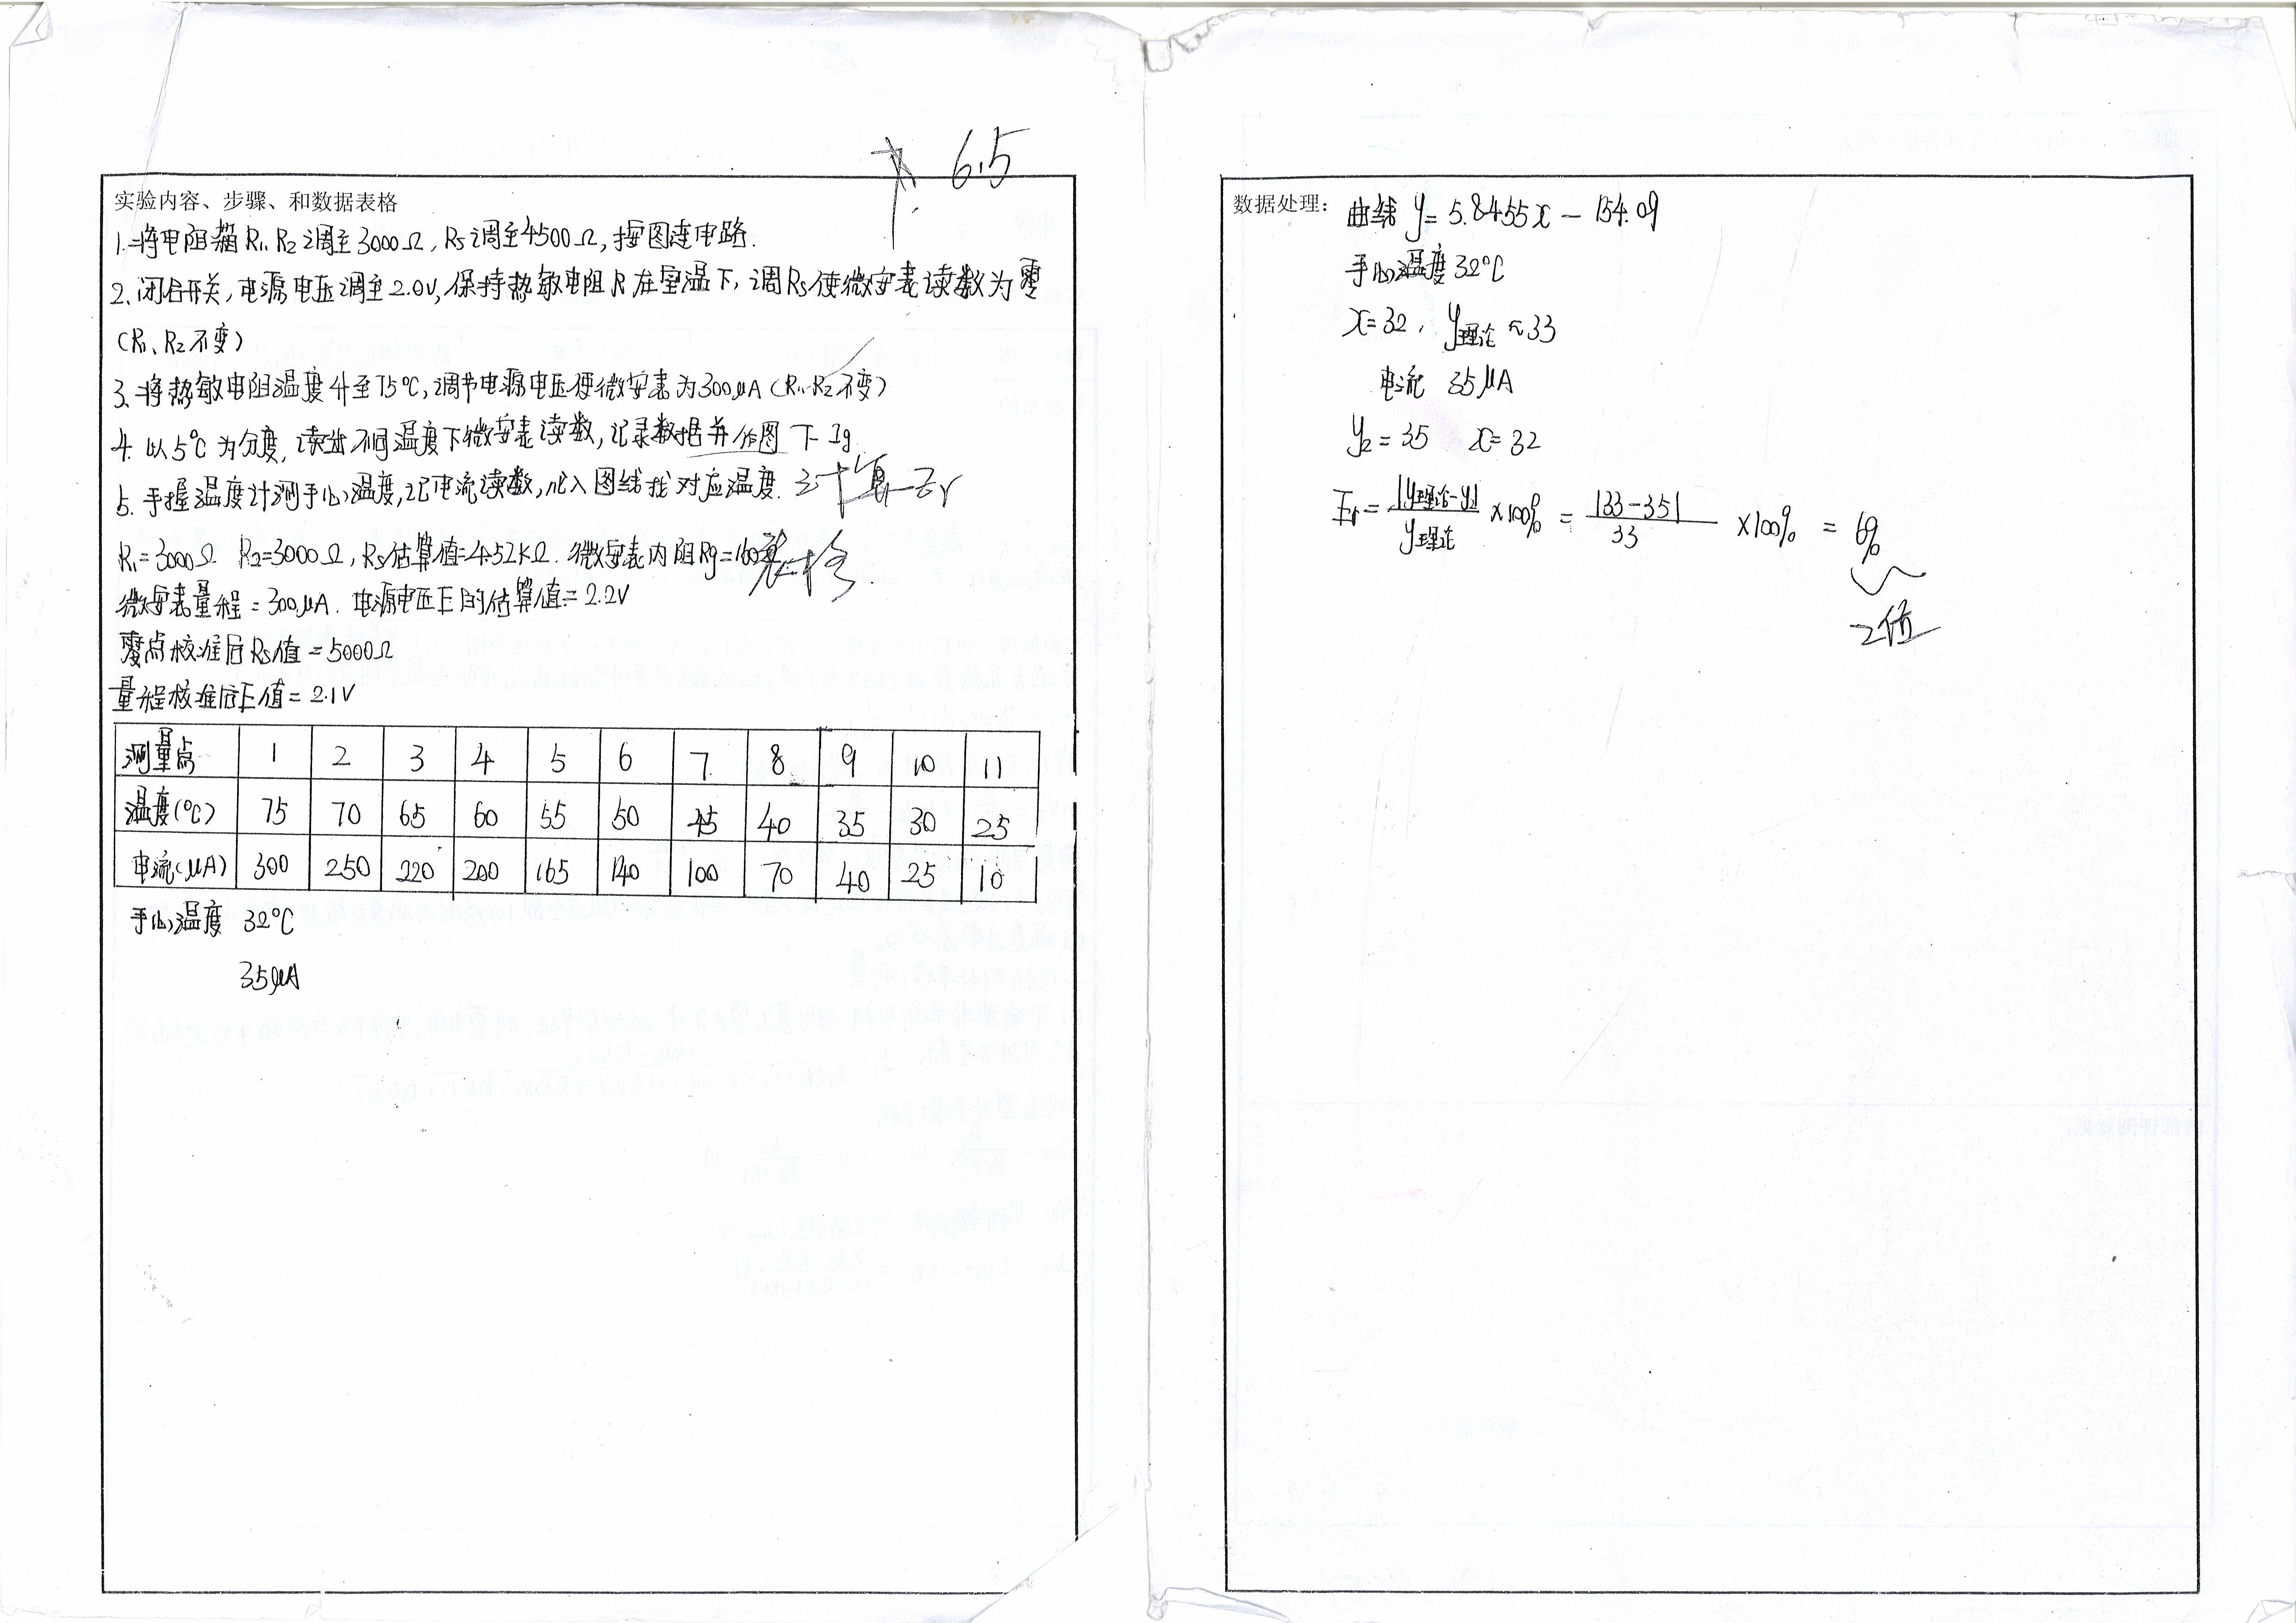 6.5
实验内容、步骤、和数据表格
1. 将电阻箱 R₁、R₂ 调至3000Ω, R₅调至4500Ω, 按图连电路.
2. 闭合开关, 电源电压调至2.0V, 保持热敏电阻R在室温下, 调R₅使微安表读数为零
(R₁、R₂不变)
3. 将热敏电阻温度升至75℃, 调节电源电压使微安表为300μA (R₁、R₂不变)
4. 以5℃为分度, 读出不同温度下微安表读数, 记录数据并作图 T-Ig
5. 手握温度计测手心温度, 记电流读数, 代入图线找对应温度. 计算Er
R₁=3000Ω R₂=3000Ω, R₅估算值=4.52KΩ. 微安表内阻Rg=160 表格
微安表量程=300μA. 电源电压E的估算值=2.2V
零点校准后R₅值=5000Ω
量程校准后E值=2.1V
测量点 1 2 3 4 5 6 7 8 9 10 11
温度(℃) 75 70 65 60 55 50 45 40 35 30 25
电流(μA) 300 250 220 200 165 140 100 70 40 25 10
手心温度 32℃
35μA
数据处理: 曲线 y=5.8455x-154.09
手心温度32℃
x=32, y理论≈33
电流 35μA
y₂=35 x=32
Er=|y理论-y₂|/y理论 ×100% = |33-35|/33 ×100% = 6%
2位